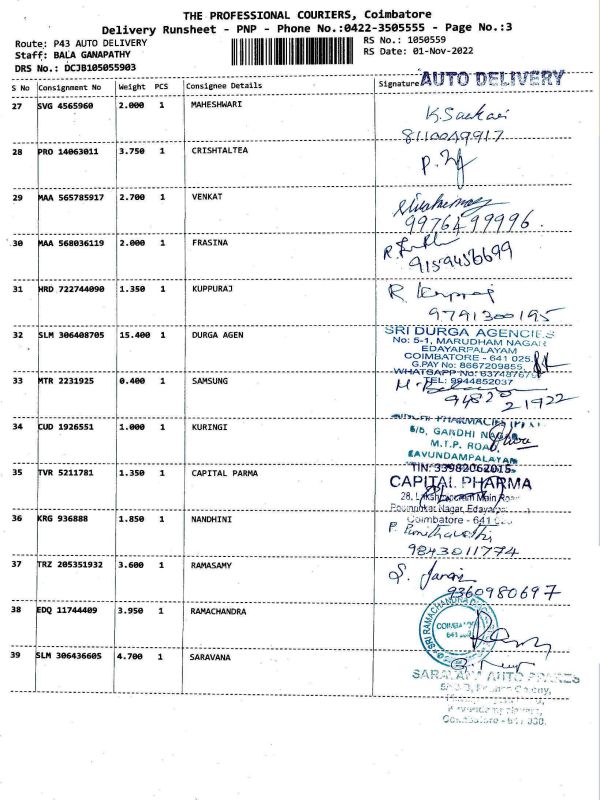 THE PROFESSIONAL COURIERS, Coimbatore
Delivery Runsheet - PNP - Phone No.:0422-3505555 - Page No.:3
Route: P43 AUTO DELIVERY
RS No.: 1050559
Staff: BALA GANAPATHY
RS Date: 01-Nov-2022
DRS No.: DCJB105055903
S No Consignment No Weight PCS Consignee Details Signature AUTO DELIVERY
27 SVG 4565960 2.000 1 MAHESHWARI
8110049917
28 PRO 14063011 3.750 1 CRISHTALTEA
29 MAA 565785917 2.700 1 VENKAT
9976499996
30 MAA 568036119 2.000 1 FRASINA
9159456699
31 HRD 722744090 1.350 1 KUPPURAJ
9791300195
32 SLM 306408705 15.400 1 DURGA AGEN
SRI DURGA AGENCIES
No: 5-1, MARUDHAM NAGAR
EDAYARPALAYAM
COIMBATORE - 641 025.
G.PAY No: 8667209855,
WHATSAPP No:
TEL: 9944852037
33 MTR 2231925 0.400 1 SAMSUNG
34 CUD 1926551 1.000 1 KURINGI
GANDHI NAGAR
M.T.P. ROAD
KAVUNDAMPALAYAM
TIN: 33982062015
35 TVR 5211781 1.350 1 CAPITAL PARMA
CAPITAL PHARMA
Main Road
Coimbatore - 641
36 KRG 936888 1.850 1 NANDHINI
9843011774
37 TRZ 205351932 3.600 1 RAMASAMY
9360980697
38 EDQ 11744409 3.950 1 RAMACHANDRA
39 SLM 306436605 4.700 1 SARAVANA